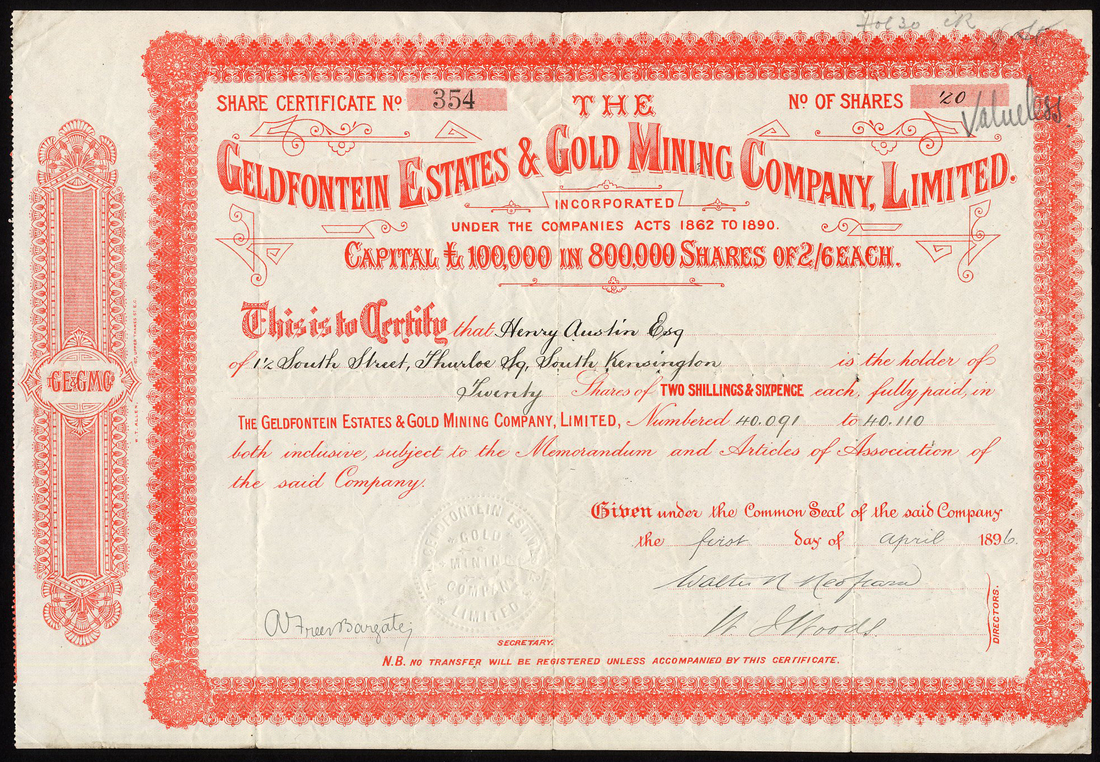 SHARE CERTIFICATE No 354
THE
No OF SHARES 20
Valueless
GELDFONTEIN ESTATES & GOLD MINING COMPANY, LIMITED.
INCORPORATED
UNDER THE COMPANIES ACTS 1862 TO 1890.
CAPITAL £100,000 IN 800,000 SHARES OF 2/6 EACH.
This is to Certify that Henry Austin Esq
of 12 South Street, Thurloe Sq, South Kensington is the holder of
Twenty Shares of TWO SHILLINGS & SIXPENCE each, fully paid, in
THE GELDFONTEIN ESTATES & GOLD MINING COMPANY, LIMITED, Numbered 40.091 to 40.110
both inclusive, subject to the Memorandum and Articles of Association of
the said Company.
Given under the Common Seal of the said Company
the first day of april 1896.
GELDFONTEIN ESTATES
GOLD
MINING
COMPANY
LIMITED
Walter
W J Woods.
DIRECTORS.
SECRETARY.
N.B. NO TRANSFER WILL BE REGISTERED UNLESS ACCOMPANIED BY THIS CERTIFICATE.
GE&GMCo